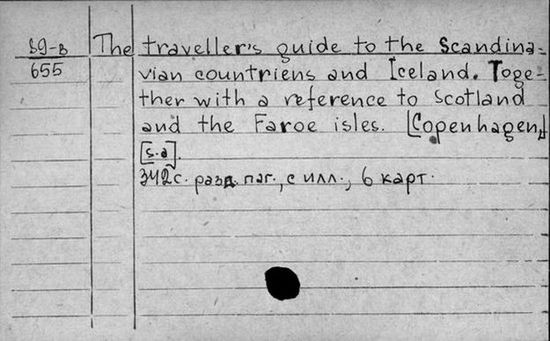 59-в The traveller's guide to the Scandina-
655 vian countriens and Iceland. Toge-
ther with a reference to Scotland
and the Faroe isles. [Copenhagen,]
[s.a].
342с. разд. паг., с илл., 6 карт.